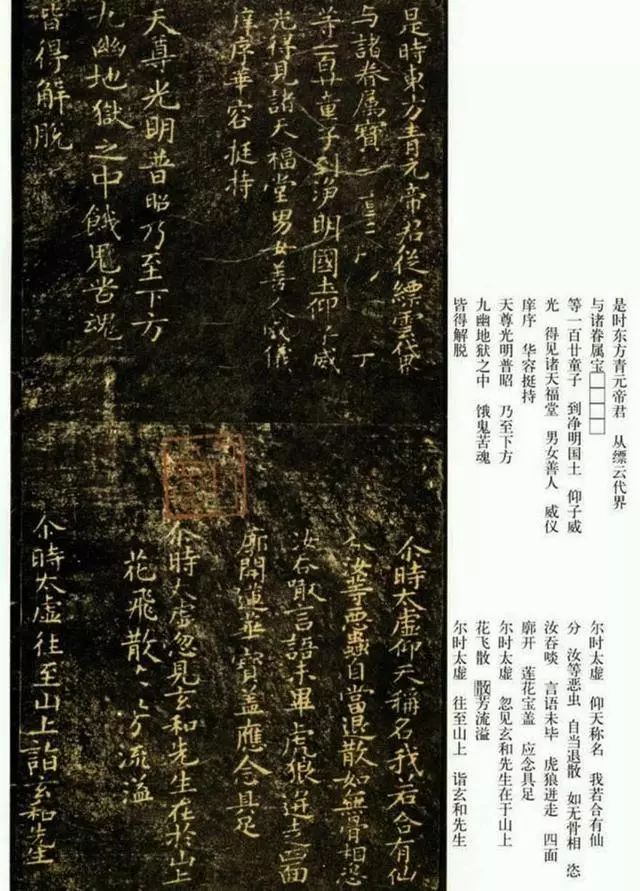 是時東方青元帝君從縹雲代界
与諸眷属寳
等一百廿童子到淨明國土仰子威
光得見諸天福堂男女善人威儀
庠序華容挺持
天尊光明普昭乃至下方
九幽地獄之中餓鬼苦魂
皆得解脱
尒時太虛仰天稱名我若合有仙
分汝等惡蟲自當退散如無骨相恣
汝吞噉言語未畢虎狼迸走四面
廓開蓮華寳盖應念具足
尒時太虛忽見玄和先生在於山上
花飛散散芳流溢
尒時太虛往至山上詣玄和先生
是时东方青元帝君 从缥云代界
与诸眷属宝□□□□
等一百廿童子 到净明国土 仰子威
光 得见诸天福堂 男女善人 威仪
庠序 华容挺持
天尊光明普昭 乃至下方
九幽地狱之中 饿鬼苦魂
皆得解脱
尔时太虚 仰天称名 我若合有仙
分 汝等恶虫 自当退散 如无骨相 恣
汝吞啖 言语未毕 虎狼迸走 四面
廓开 莲花宝盖 应念具足
尔时太虚 忽见玄和先生在于山上
花飞散 散芳流溢
尔时太虚 往至山上 诣玄和先生